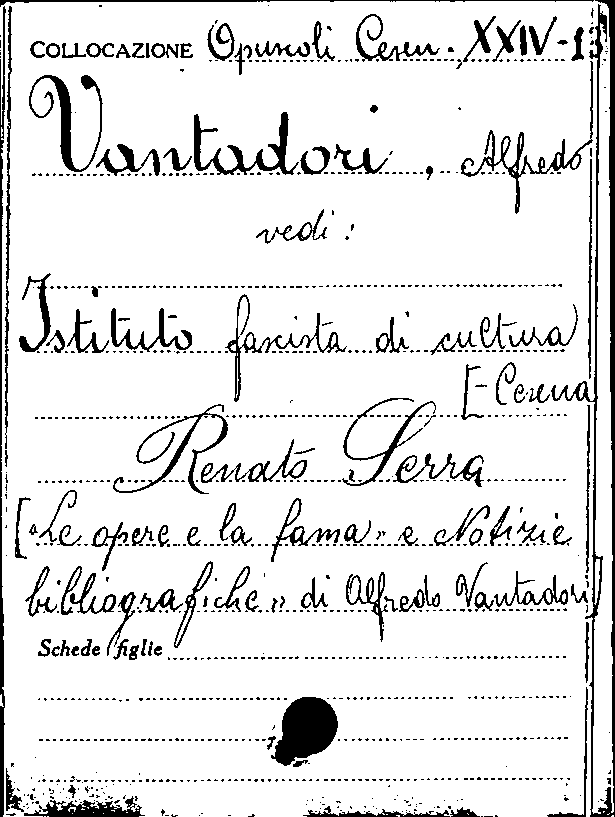 COLLOCAZIONE Opuscoli Cesen. XXIV-13
Vantadori, Alfredo
vedi:
Istituto fascista di cultura
[-Cesena
Renato Serra
["Le opere e la fama" e Notizie
bibliografiche" di Alfredo Vantadori]
Schede figlie